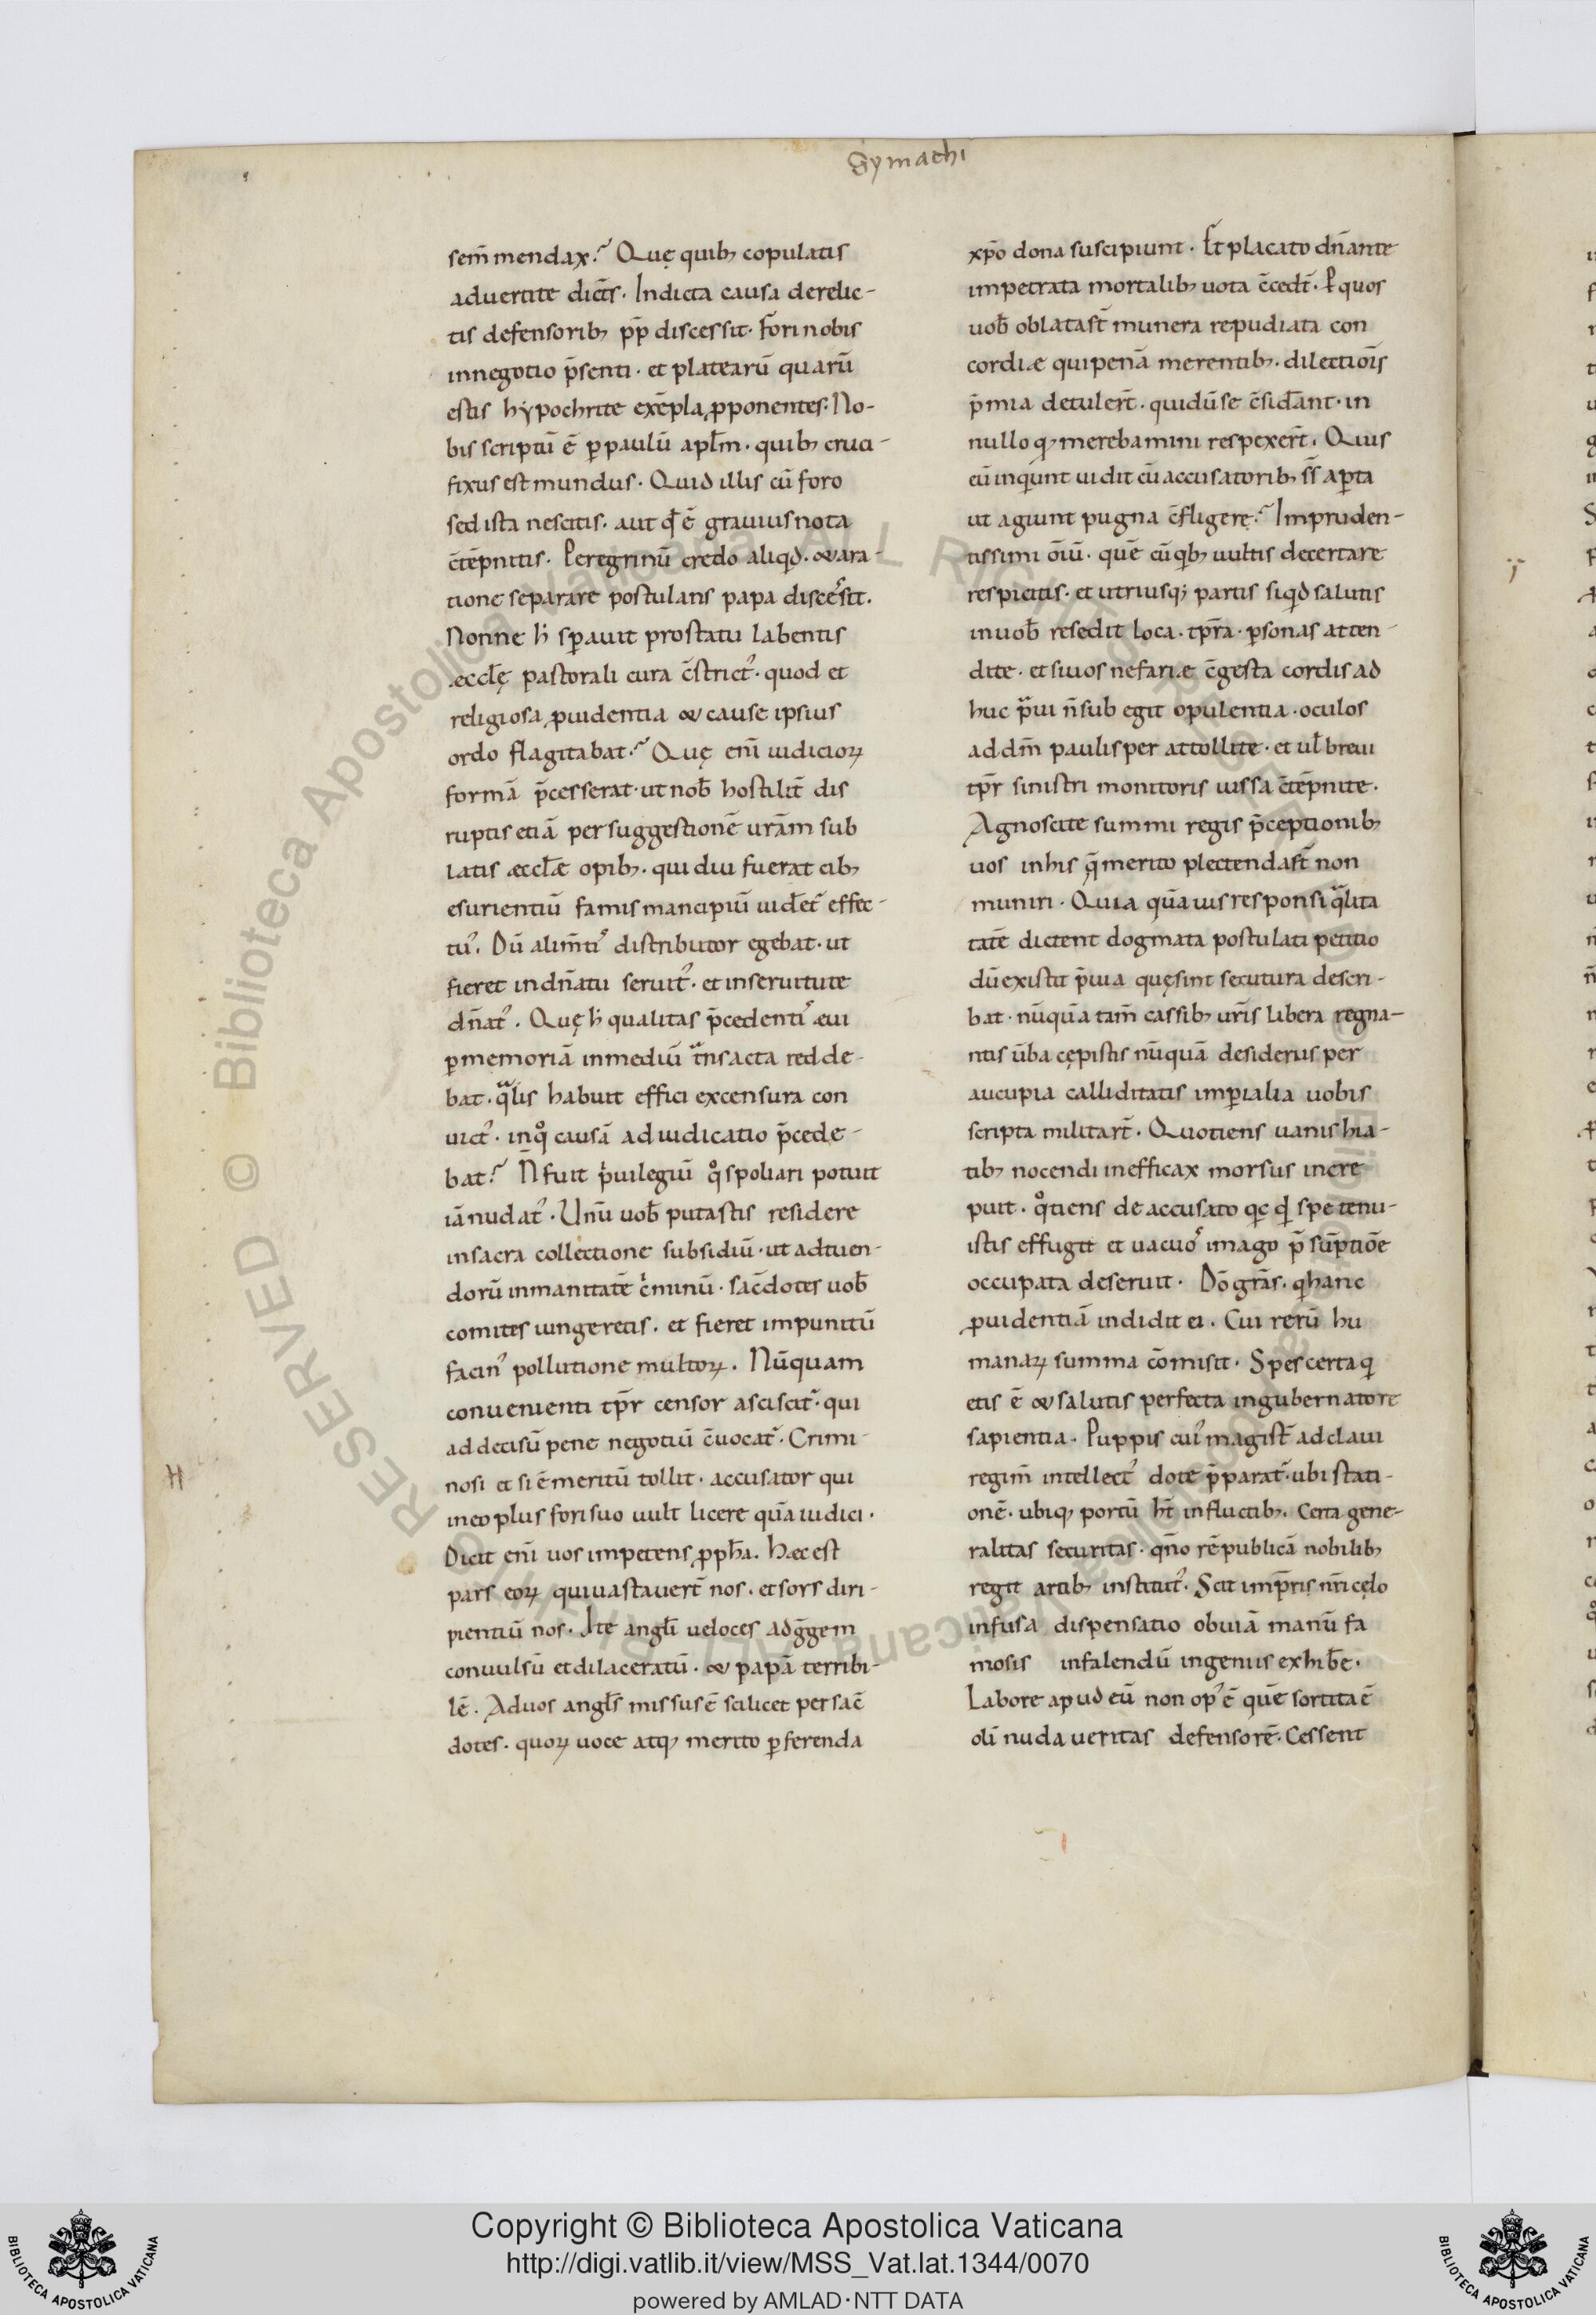 Symachi
sem̄ mendax? Quę quib; copulatis
aduertite dictīs. Indicta causa derelic-
tis defensorib; pp̄ discessit. fōri nobis
innegotio p̄senti. et platearū quarū
estis hẏpochrite exēpla ꝓponentes: No-
bis scriptū ē ꝑ paulū apl̄m. quib; cruci-
fixus est mundus. Quid illis cū foro
sed ista nescitis. aut qd̄ ē grauius nota
c̄tēpnitis. Peregrinū credo aliqd. & ara-
tione separare postulans papa discēsit.
Nonne h̄ sperauit prostatu labentis
æcclę pastorali cura c̄strict᾿. quod et
religiosa ꝓuidentia & cause ipsius
ordo flagitabat? Quę eni᷑ iudicioꝝ
formā p̄cesserat. ut nob̄ hostilit̄ dis
ruptis etiā per suggestionē ur̄am sub
latis æccl̄æ opib;. qui diu fuerat cib;
esurientiū famis mancipiū uidet᷑ effec-
tu᾿. Dū alim̄ti᾿ distributor egebat. ut
fieret in dn̄atu seruit᾿. et inseruitute
dn̄at᾿. Quę h̄ qualitas p̄cedenti᾿ æui
ꝑ memoriā inmediū tͣnsacta redde-
bat. qͣlis habuit effici excensura con
uict᾿. inqͦ causā adiudicatio p̄cede-
bat? N̄ fuit pͥuilegiū qͦ spoliari potuit
iā nudat᾿. Unū uob̄ putastis residere
insacra collectione subsidiū. ut adtuen-
dorū inmanitatē cͥminū. sac̄dotes uob̄
comites iungeretis. et fieret impunitū
facin᾿ pollutione multoꝝ. Nūquam
conuenienti tp̄r censor asciscit᷑. qui
ad decisū pene negotiū c̄uocat᷑. Crimi-
nosi et si ē meritū tollit. accusator qui
H
ineo plus fori suo uult licere quā iudici.
Dicit eni᷑ uos impetens ꝓph̄a. Hæc est
pars eoꝝ qui uastauer̄t nos. et sors diri-
pientiū nos. Ite angl̄i ueloces adḡgem
conuulsū et dilaceratū. & papā terribi-
lē. Ad uos angl̄s missus ē scilicet per sac̄
dotes. quoꝝ uoce atq; merito ꝑferenda
xp̄o dona suscipiunt. Et placato dn̄ante
impetrata mortalib; uota c̄cedt̄. P quos
uob̄ oblatast̄ munera repudiata con
cordiæ qui penā merentib;. dilectiōis
p̄mia detuler̄t. qui dū se c̄sidant. in
nullo q; merebamini respexer̄t. Quis
eū inqͥunt uidit cū accusatorib; s̄s aꝑta
ut agiunt pugna c̄fligere? Impruden-
tissimi oīū. quē cū qͥb; uultis decertare
respicitis. et utriusq; partis siqd salutis
in uob̄ resedit loca. tp̄ra. ꝑsonas atten-
dite. et si uos nefariæ c̄gesta cordis ad
huc pͣui n̄ sub egit opulentia. oculos
ad dm̄ paulisper attollite. et ul̄ breui
tp̄r sinistri monitoris iussa c̄tēpnite.
Agnoscite summi regis p̄ceptionib;
uos inhis q̄ merito plectendast̄ non
muniri. Quia quāuis responsi qͣlita
tatē dictent dogmata postulati petitio
dū existit p̄uia quę sint secutura descri-
bat. nūquā tam̄ cassib; ur̄is libera regna-
ntis ūba cępistis nūquā desideriis per
aucupia calliditatis imꝑialia uobis
scripta militar̄t. Quotiens uanis hia-
tib; nocendi inefficax morsus incre
puit. qͦtiens de accusato qc qd spe tenu-
istis effugit et uacuo᾿ imago p̄sūptiōe
occupata deseruit. Dō grās. qͥ hanc
ꝓuidentiā indidit ei. Cui rerū hu
manaꝝ summa cōmisit. Spes certa qͥ
etis ē & salutis perfecta ingubernatore
sapientia. Puppis cui᾿ magist̄ ad claui
regim̄ intellect᾿ dote p̄parat᷑. ubi stati-
onē. ubiq; portū ht̄ influctib;. Certa gene-
ralitas securitas. qn̄o rēpublicā nobilib;
regit artib; institut᾿. Scit imp̄ris nr̄i cęlo
infusa dispensatio obuiā manū fa
mosis infalendū ingeniis exhib̄e.
Labore apud eū non op᾿ ē quē sortita ē
olī nuda ueritas defensorē. Cessent
Copyright © Biblioteca Apostolica Vaticana
http://digi.vatlib.it/view/MSS_Vat.lat.1344/0070
powered by AMLAD·NTT DATA
BIBLIOTECA APOSTOLICA VATICANA
BIBLIOTECA APOSTOLICA VATICANA